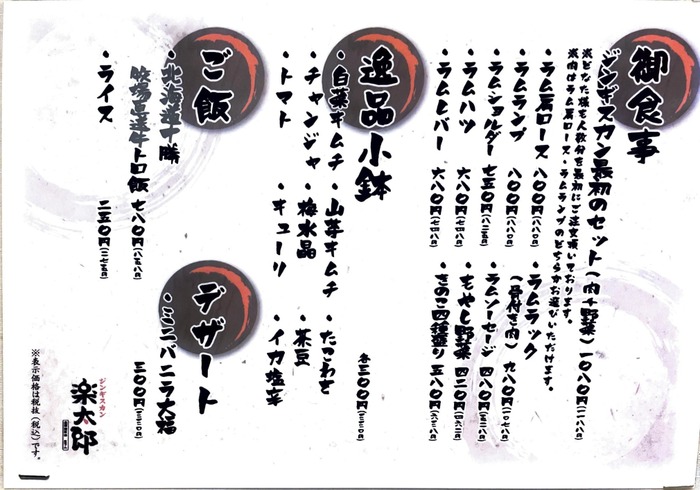 御食事
ジンギスカン最初のセット(肉+野菜) 一〇八〇円(一一八八)
※どなた様も人数分を最初にご注文頂いております。
※肉はラム肩ロース・ラムランプのどちらかお選びいただけます。
・ラム肩ロース 八〇〇円(八八〇)
・ラムランプ 八〇〇円(八八〇)
・ラムショルダー 七五〇円(八二五)
・ラムハツ 六八〇円(七四八)
・ラムレバー 六八〇円(七四八)
・ラムラック
(骨付き肉) 九八〇円(一〇七八)
・ラムソーセージ 四八〇円(五二八)
・もやし野菜 四二〇円(四六二)
・きのこ四種盛り 五八〇円(六三八)
逸品小鉢
・白菜キムチ
・チャンジャ
・トマト
・山芋キムチ
・梅水晶
・キューリ
・たこわさ
・茶豆
・イカ塩辛
各三〇〇円(三三〇)
ご飯
・北海道十勝
牧場直送牛トロ飯 七八〇円(八五八)
・ライス 二五〇円(二七五)
デザート
・ミニバニラ大福
三〇〇円(三三〇)
ジンギスカン
楽太郎
※表示価格は税抜(税込)です。